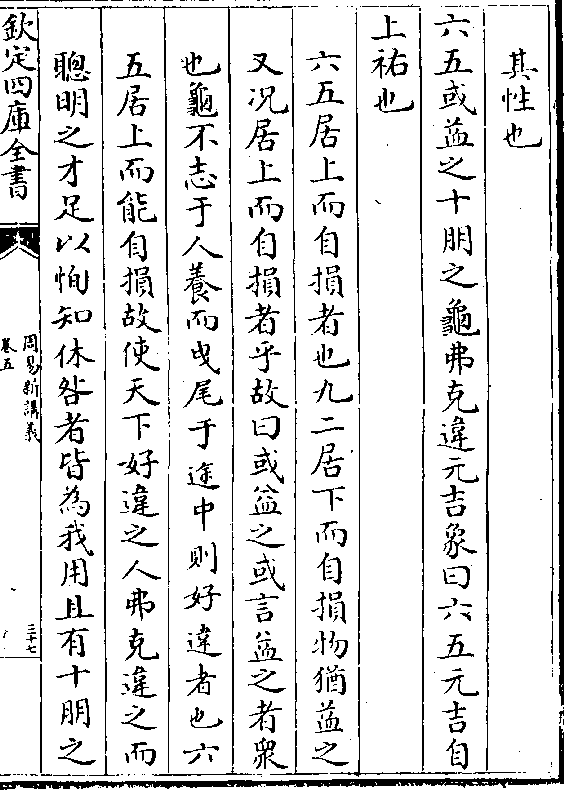 其性也
六五或益之十朋之龜弗克違元吉象曰六五元吉自
上祐也
六五居上而自損者也九二居下而自損物猶益之
又况居上而自損者乎故曰或益之或言益之者衆
也龜不志于人養而曳尾于途中則好違者也六
五居上而能自損故使天下好違之人弗克違之而
聰明之才足以恂知休咎者皆為我用且有十朋之
欽定四庫全書
周易新講義
卷五
三十七